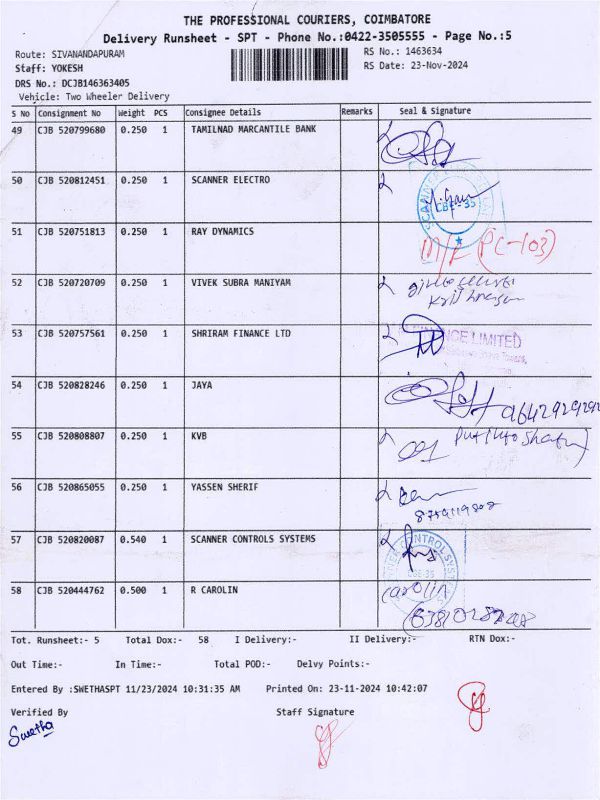 THE PROFESSIONAL COURIERS, COIMBATORE
Delivery Runsheet - SPT - Phone No.:0422-3505555 - Page No.:5
Route: SIVANANDAPURAM RS No.: 1463634
Staff: YOKESH RS Date: 23-Nov-2024
DRS No.: DCJB146363405
Vehicle: Two Wheeler Delivery
S No Consignment No Weight PCS Consignee Details Remarks Seal & Signature
49 CJB 520799680 0.250 1 TAMILNAD MARCANTILE BANK
50 CJB 520812451 0.250 1 SCANNER ELECTRO
CBE-35
51 CJB 520751813 0.250 1 RAY DYNAMICS
(PC-103)
52 CJB 520720709 0.250 1 VIVEK SUBRA MANIYAM
53 CJB 520757561 0.250 1 SHRIRAM FINANCE LTD
NCE LIMITED
54 CJB 520828246 0.250 1 JAYA
55 CJB 520808807 0.250 1 KVB
56 CJB 520865055 0.250 1 YASSEN SHERIF
57 CJB 520820087 0.540 1 SCANNER CONTROLS SYSTEMS
CBE-35
58 CJB 520444762 0.500 1 R CAROLIN
carolin
Tot. Runsheet:- 5 Total Dox:- 58 I Delivery:- II Delivery:- RTN Dox:-
Out Time:- In Time:- Total POD:- Delvy Points:-
Entered By :SWETHASPT 11/23/2024 10:31:35 AM Printed On: 23-11-2024 10:42:07
Verified By Staff Signature
Swetha